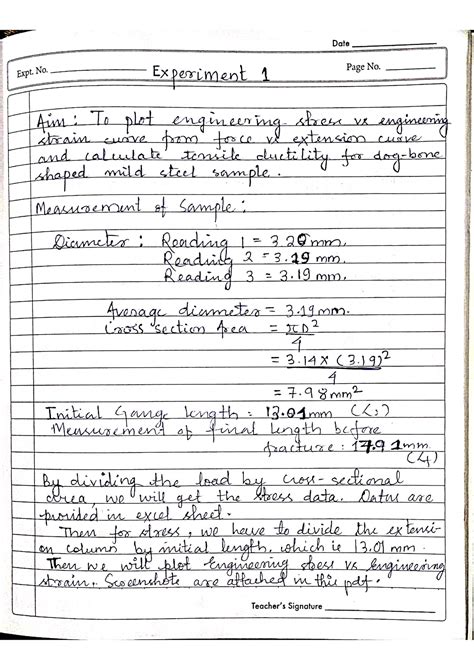 Date
Expt. No.
Experiment 1
Page No.
Aim : To plot engineering stress vs engineering
strain curve from force vs extension curve
and calculate tensile ductility for dog-bone
shaped mild steel sample.
Measurement of Sample :
Diameter : Reading 1 = 3.20 mm.
Reading 2 = 3.19 mm.
Reading 3 = 3.19 mm.
Average diameter = 3.19 mm.
Cross section Area = πD²
4
= 3.14 × (3.19)²
4
= 7.98 mm²
Initial Gauge length : 13.01 mm
Measurement of final length before
fracture : 17.91 mm.
By dividing the load by cross-sectional
area, we will get the stress data. Datas are
provided in excel sheet.
Then for stress, we have to divide the extensi-
on column by initial length, which is 13.01 mm.
Then we will plot engineering stress vs engineering
strain. Screenshots are attached in this pdf.
Teacher's Signature